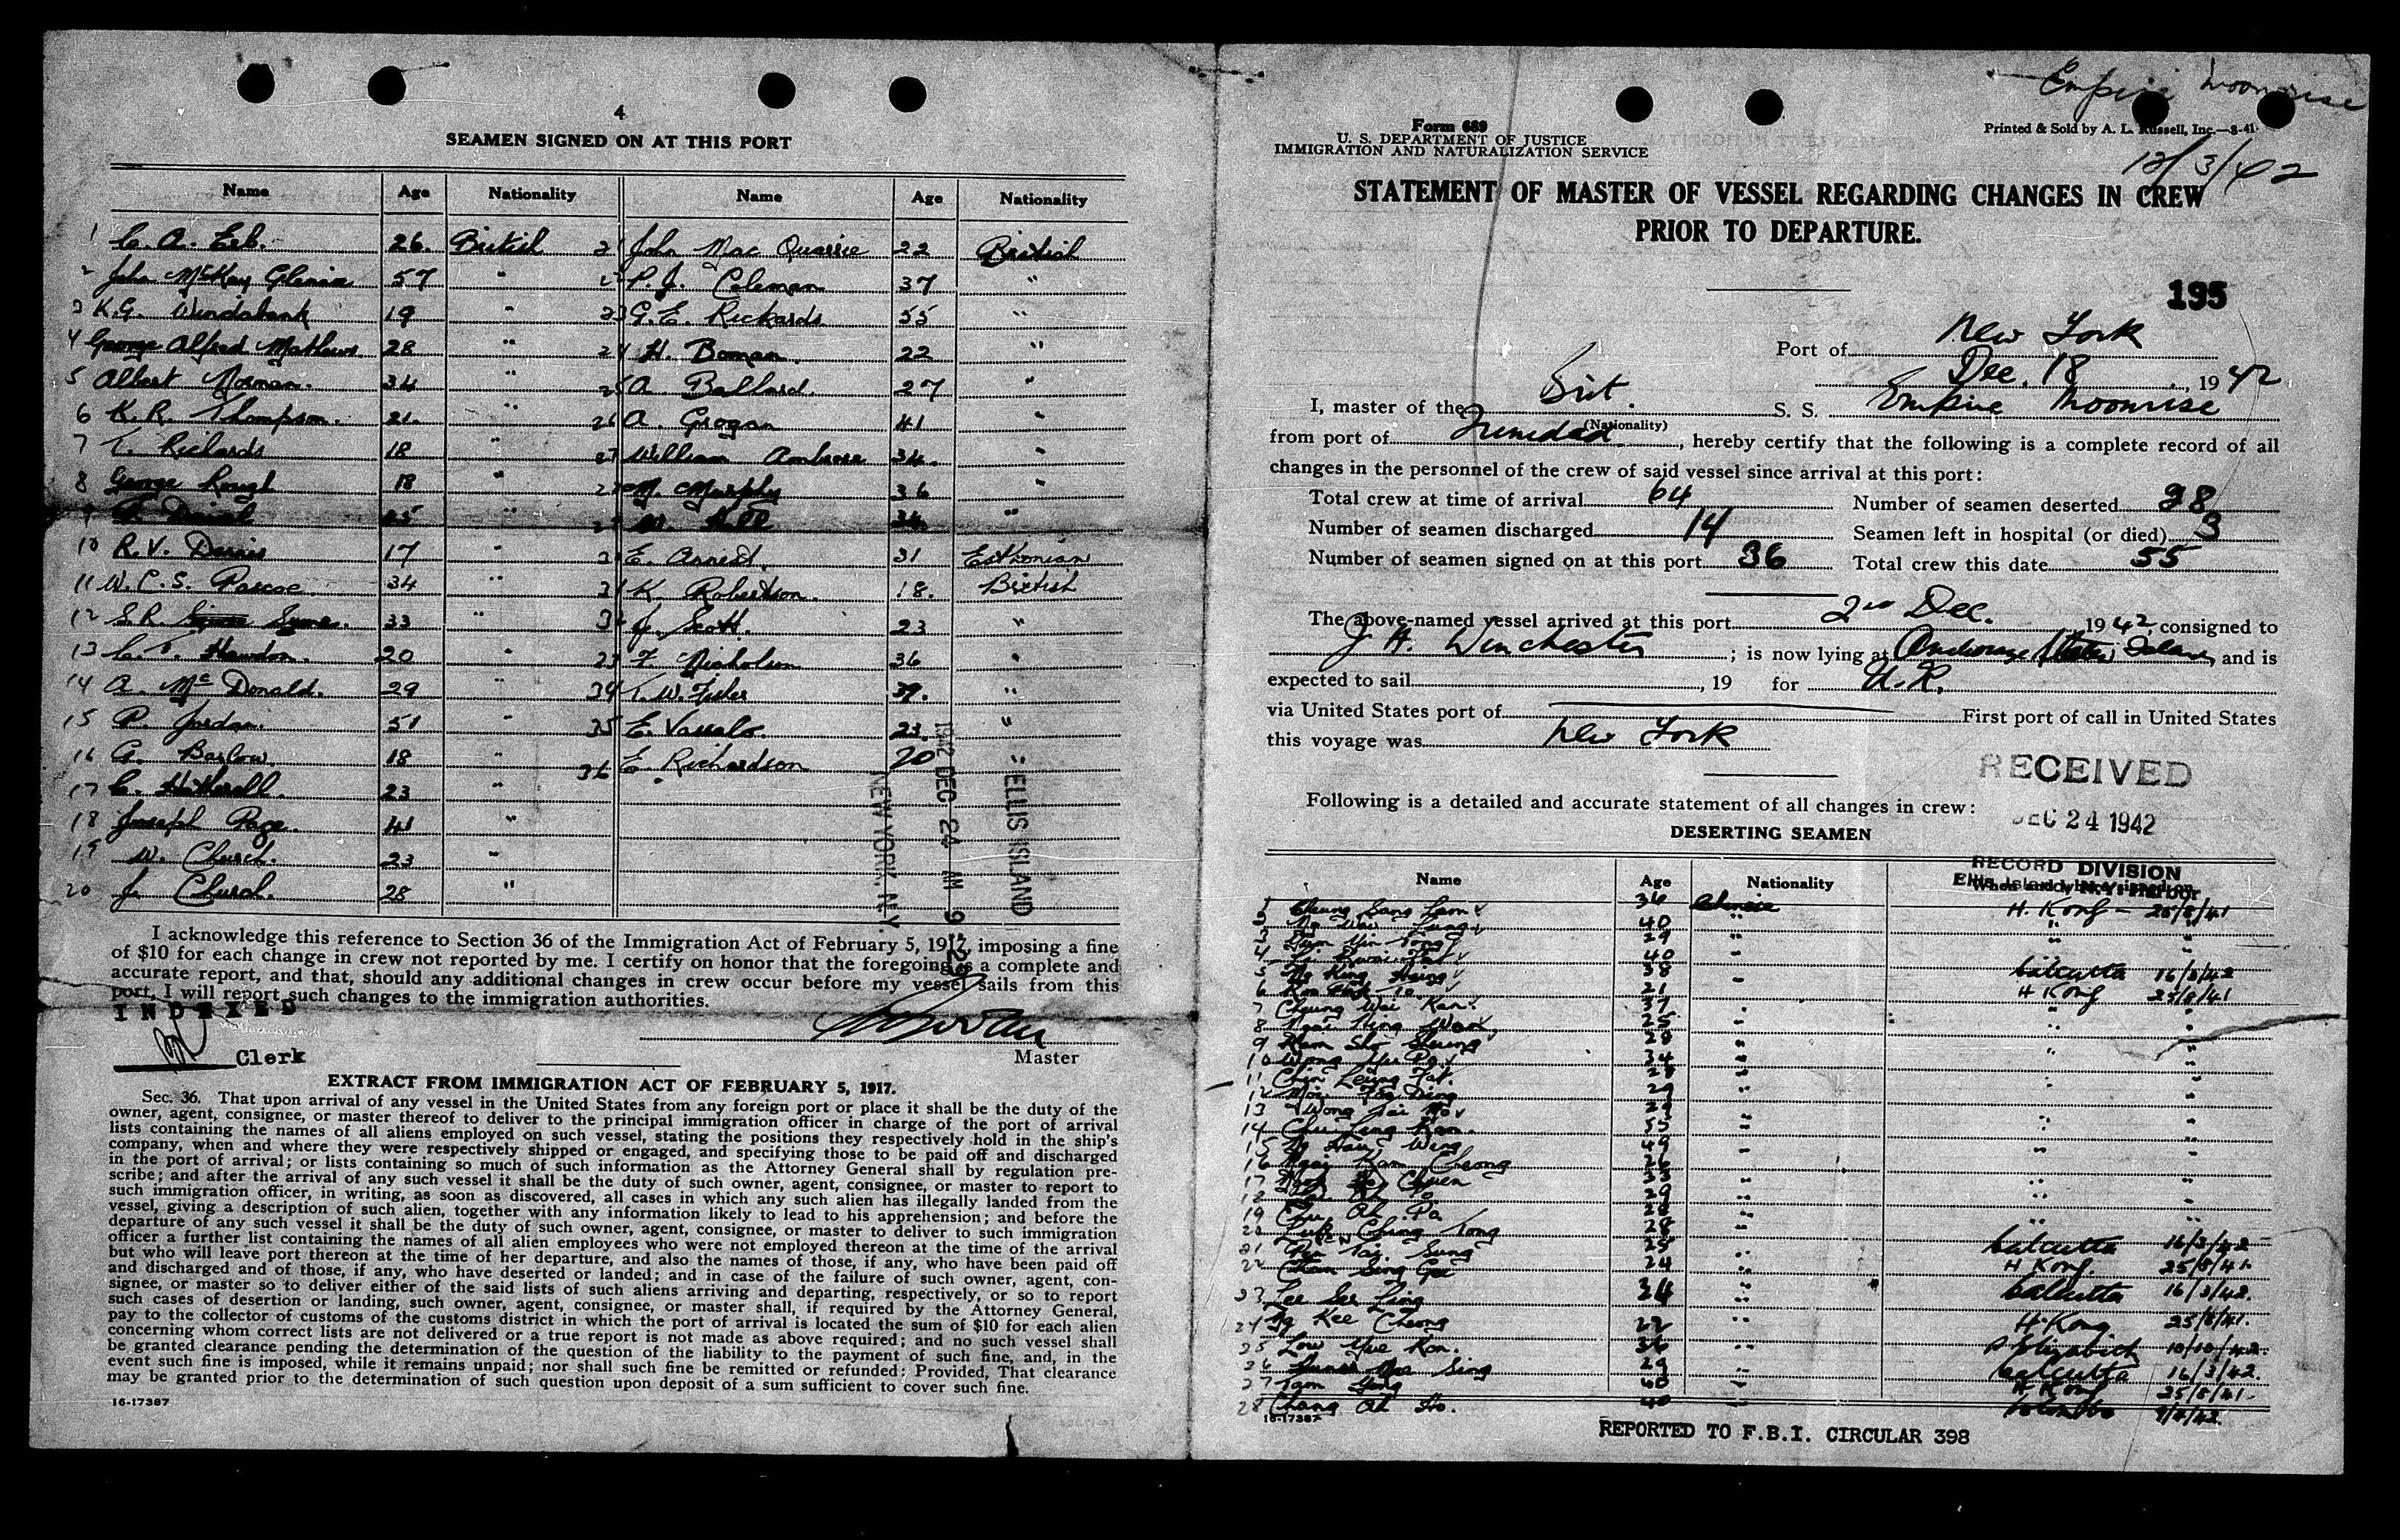 4
SEAMEN SIGNED ON AT THIS PORT
Name Age Nationality Name Age Nationality
1 C. A. Erb. 26. British
2 John McKay Glennie 57 "
3 K.G. Windebank 19 "
4 George Alfred Mathews 28 "
5 Albert Norman. 34 "
6 K. R. Thompson. 21. "
7 T. Richards 18 "
8 George Lough 18 "
9 45 "
10 R. V. 17 "
11 W. C. S. Pascoe 34 "
12 S. R. Syme. 33 "
13 C. T. Hawdon. 20 "
14 A. Mc Donald. 29 "
15 P. Jordan. 51 "
16 G. Barlow. 18 "
17 C. 23 "
18 Joseph Page. 41 "
19 W. Church. 23 "
20 J. Church. 28 "
21 John Mac Quarrie 22 British
22 P. J. Coleman 37 "
23 G. E. Rickards 55 "
24 H. Boman. 22 "
25 A Ballard. 27 "
26 A. Grogan 41 "
27 William Ambrose 34. "
28 M. Murphy 36 "
29 34 "
30 E. Arnest. 31 Esthonian
31 K. Robertson. 18. British
32 J. Scott. 23 "
33 F. Nicholson 36 "
34 T. W. Fisher 39. "
35 E. Vassalo 23. "
36 E. Richardson 20 "
ELLIS ISLAND
1942 DEC 24 AM 9
NEW YORK, N.Y.
I acknowledge this reference to Section 36 of the Immigration Act of February 5, 1917, imposing a fine
of $10 for each change in crew not reported by me. I certify on honor that the foregoing is a complete and
accurate report, and that, should any additional changes in crew occur before my vessel sails from this
port, I will report such changes to the immigration authorities.
INDEXED
Clerk
Master
EXTRACT FROM IMMIGRATION ACT OF FEBRUARY 5, 1917.
Sec. 36. That upon arrival of any vessel in the United States from any foreign port or place it shall be the duty of the
owner, agent, consignee, or master thereof to deliver to the principal immigration officer in charge of the port of arrival
lists containing the names of all aliens employed on such vessel, stating the positions they respectively hold in the ship's
company, when and where they were respectively shipped or engaged, and specifying those to be paid off and discharged
in the port of arrival; or lists containing so much of such information as the Attorney General shall by regulation pre-
scribe; and after the arrival of any such vessel it shall be the duty of such owner, agent, consignee, or master to report to
such immigration officer, in writing, as soon as discovered, all cases in which any such alien has illegally landed from the
vessel, giving a description of such alien, together with any information likely to lead to his apprehension; and before the
departure of any such vessel it shall be the duty of such owner, agent, consignee, or master to deliver to such immigration
officer a further list containing the names of all alien employees who were not employed thereon at the time of the arrival
but who will leave port thereon at the time of her departure, and also the names of those, if any, who have been paid off
and discharged and of those, if any, who have deserted or landed; and in case of the failure of such owner, agent, con-
signee, or master so to deliver either of the said lists of such aliens arriving and departing, respectively, or so to report
such cases of desertion or landing, such owner, agent, consignee, or master shall, if required by the Attorney General,
pay to the collector of customs of the customs district in which the port of arrival is located the sum of $10 for each alien
concerning whom correct lists are not delivered or a true report is not made as above required; and no such vessel shall
be granted clearance pending the determination of the question of the liability to the payment of such fine, and, in the
event such fine is imposed, while it remains unpaid; nor shall such fine be remitted or refunded; Provided, That clearance
may be granted prior to the determination of such question upon deposit of a sum sufficient to cover such fine.
16-17387
Empire Moonrise
Form 689
U. S. DEPARTMENT OF JUSTICE
IMMIGRATION AND NATURALIZATION SERVICE
Printed & Sold by A. L. Russell, Inc.—8-41
12/3/42
STATEMENT OF MASTER OF VESSEL REGARDING CHANGES IN CREW
PRIOR TO DEPARTURE.
195
Port of New York
Dec. 18, 1942
I, master of the Brit. S. S. Empire Moonrise
(Nationality)
from port of Trinidad, hereby certify that the following is a complete record of all
changes in the personnel of the crew of said vessel since arrival at this port:
Total crew at time of arrival 64 Number of seamen deserted 28
Number of seamen discharged 14 Seamen left in hospital (or died) 3
Number of seamen signed on at this port 36 Total crew this date 55
The above-named vessel arrived at this port 2nd Dec. 1942, consigned to
J. H. Winchester; is now lying at Anchorage Staten Island and is
expected to sail , 19 for U.K.
via United States port of First port of call in United States
this voyage was New York
RECEIVED
DEC 24 1942
RECORD DIVISION
Following is a detailed and accurate statement of all changes in crew:
DESERTING SEAMEN
Name Age Nationality
1 Cheung Sang Lam 36 Chinese H. Kong - 25/8/41
2 40 " " "
3 29 " " "
4 40 "
5 Ng King 38 " Calcutta 16/3/42
6 21 " H Kong 25/8/41
7 Cheung Wai Kan 37 " " "
8 25 " " "
9 28 " " "
10 Wong 34 " " "
11 Chin Leung Fat.
12
13 Wong
14 55 "
15 Ng Wing 49 "
16 Kam Cheong
17 33
18 29
19 Chu Ah Pa.
20 Ching Tong 28 "
21 Tai Sung 25 " Calcutta 16/3/42
22 Chan Sing 24 " H Kong. 25/8/41
23 Lee See Ling 34 " Calcutta 16/3/42.
24 Ng Kee Cheong 22 " H. Kong 25/8/41.
25 Low Yue Kon. 36 " 10/10/42.
26 Sing 29 " Calcutta 16/3/42.
27 40 " H Kong 25/8/41.
28 Chang Ah Ho. 40 " Colombo 9/4/42.
16-17387
REPORTED TO F.B.I. CIRCULAR 398